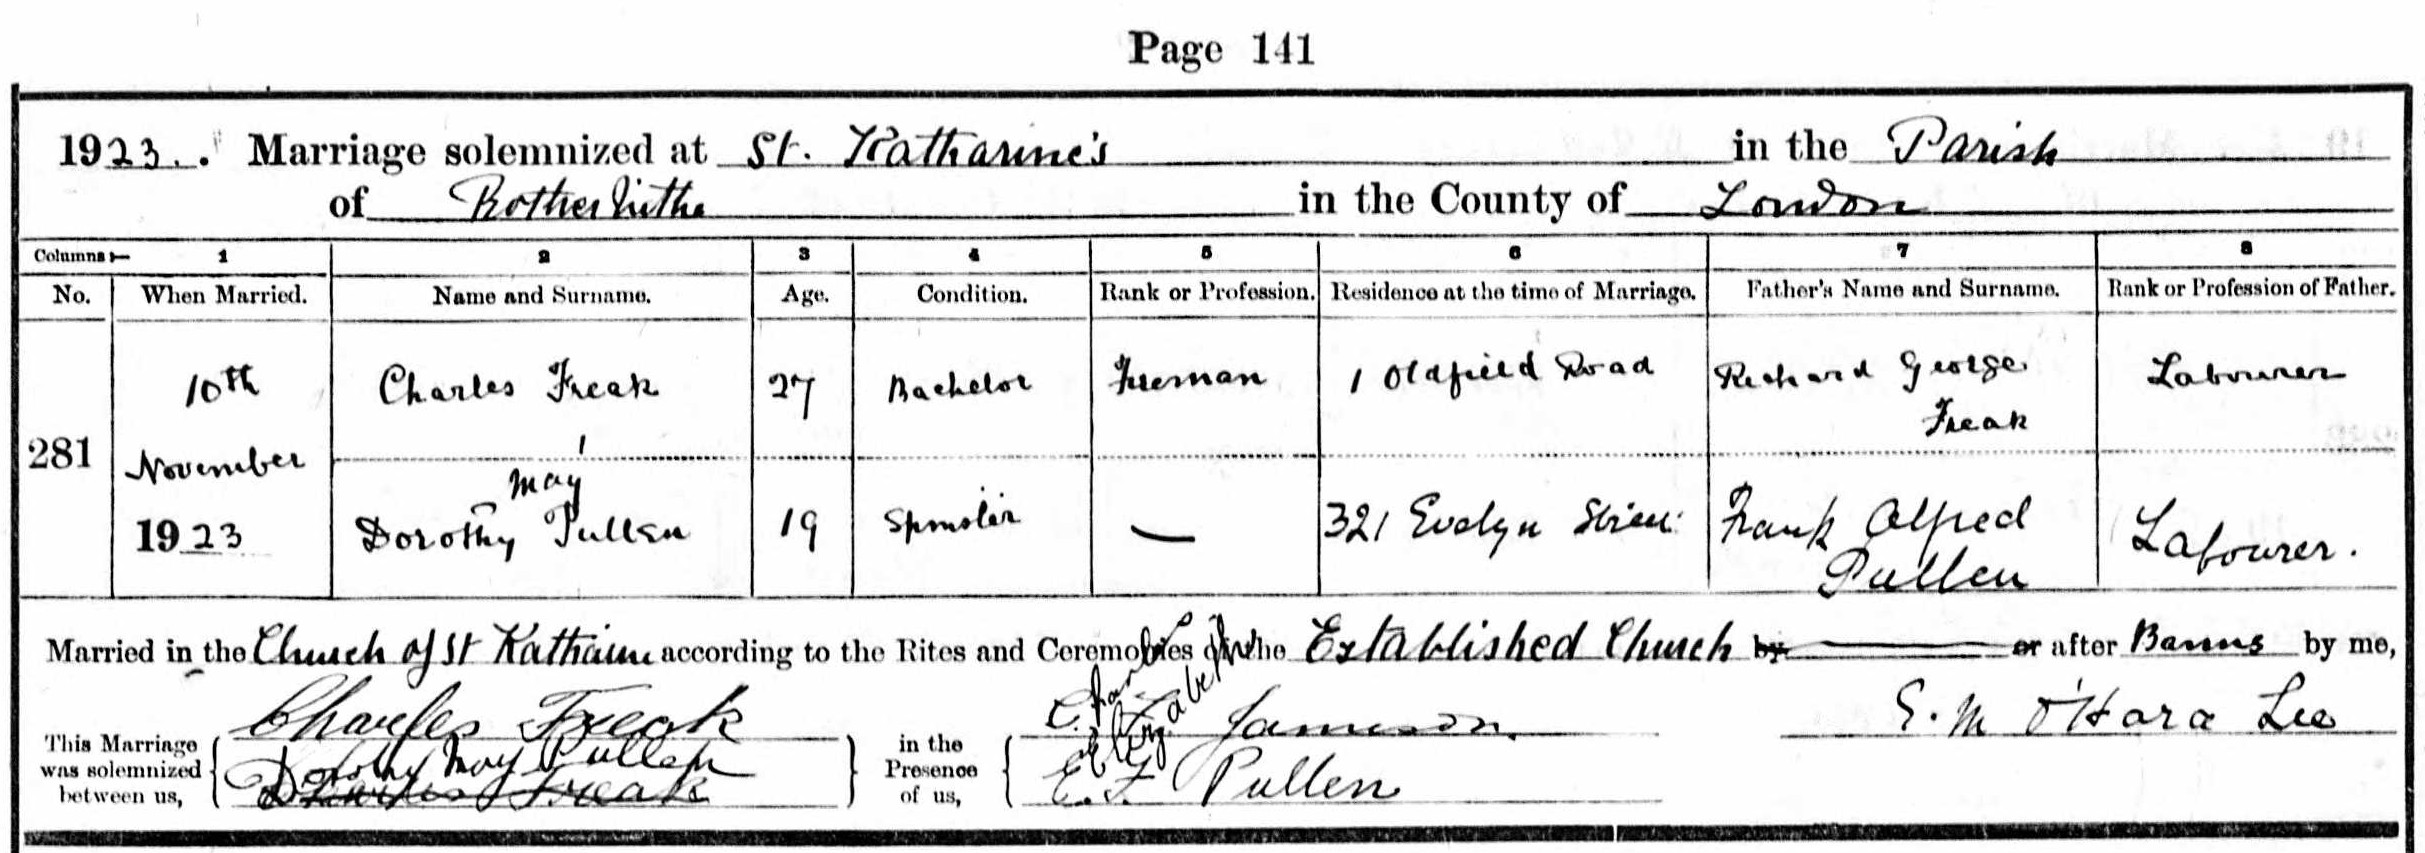 Page 141
1923. Marriage solemnized at St. Katharine's in the Parish
of Rotherhithe in the County of London
Columns:— 1 2 3 4 5 6 7 8
No. When Married. Name and Surname. Age. Condition. Rank or Profession. Residence at the time of Marriage. Father's Name and Surname. Rank or Profession of Father.
10th Charles Freak 27 Bachelor Fireman 1 Oldfield Road Richard George Labourer
Freak
281 November
May
1923 Dorothy Pullen 19 Spinster — 321 Evelyn Street Frank Alfred Labourer.
Pullen
Married in the Church of St Katharine according to the Rites and Ceremonies of the Established Church by or after Banns by me,
Charles Freak C. Jameson. E. M O'Hara Lee
This Marriage was solemnized between us, in the Presence of us,
Dorothy May Pullen Elizabeth
E. F. Pullen